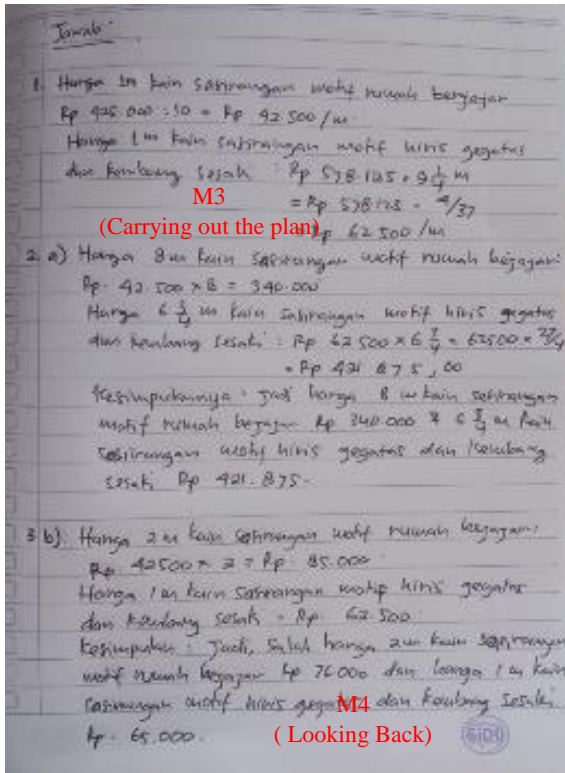 Jawab :
1. Harga 1m kain sasirangan motif rumah berjajar
Rp 425.000 : 10 = Rp 42.500 /m
Harga 1 m kain sasirangan motif hiris gegatas
dan kambang sasak : Rp 578.125 : 9 1/4 m
M3
= Rp 578.125 × 4/37
(Carrying out the plan)
Rp 62.500 /m
2. a) Harga 8 m kain sasirangan motif rumah bejajar:
Rp. 42.500 × 8 = 340.000
Harga 6 3/4 m kain sasirangan motif hiris gegatas
dan kambang sesaki : Rp 62.500 × 6 3/4 = 62500 × 27/4
= Rp 421.875,00
Kesimpulannya : Jadi harga 8 m kain sasirangan
motif rumah bejajar Rp 340.000 & 6 3/4 m kain
sasirangan motif hiris gegatas dan kambang
sesaki Rp 421.875.
3 b) Harga 2 m kain sasirangan motif rumah bejajar:
Rp 42500 × 2 = Rp 85.000
Harga 1 m kain sasirangan motif hiris gegatas
dan kambang sesak = Rp. 62.500
Kesimpulan : Jadi, salah harga 2m kain sasirangan
motif rumah bejajar Rp 76.000 dan harga 1 m kain
sasirangan motif hiris gegatas dan kambang sesaki
M4
Rp. 65.000.
( Looking Back)
SIDU